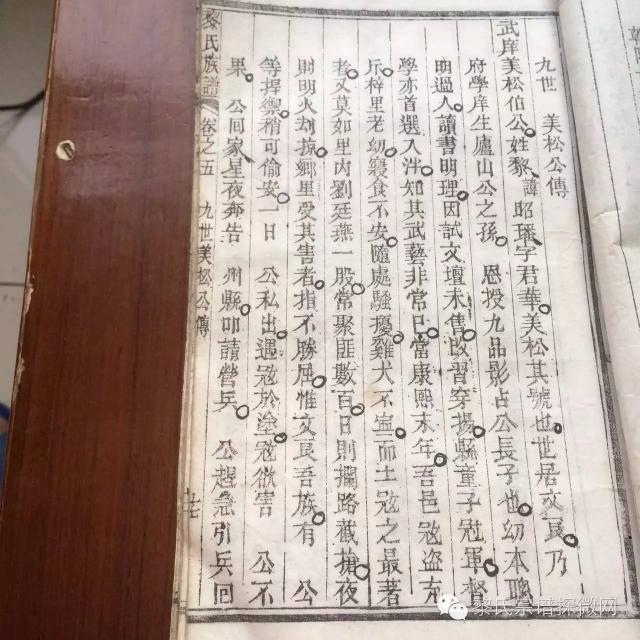 九世 美松公傳
武庠美松伯公姓黎諱昭璟字君華美松其號也世居文良乃
府學庠生廬山公之孫 恩授九品影占公長子也幼本聰
明過人讀書明理因試文壇未售改習穿揚縣童子冠軍督
學亦首選入泮知其武藝非常已當康熙末年吾邑寇盜充
斥梓里老幼寢食不安隨處騷擾雞犬不寧而土寇之最著
者又莫如里內劉廷燕一股常聚匪數百日則攔路截搶夜
則明火刧掠鄉里受其害者指不勝屈惟文良吾族有 公
等捍禦稍可偷安一日 公私出遇寇於塗寇欲害 公不
果 公回家星夜奔告 州縣叩請營兵 公趕急引兵回
黎氏族譜 卷之五 九世美松公傳
七
黎氏宗谱探微网